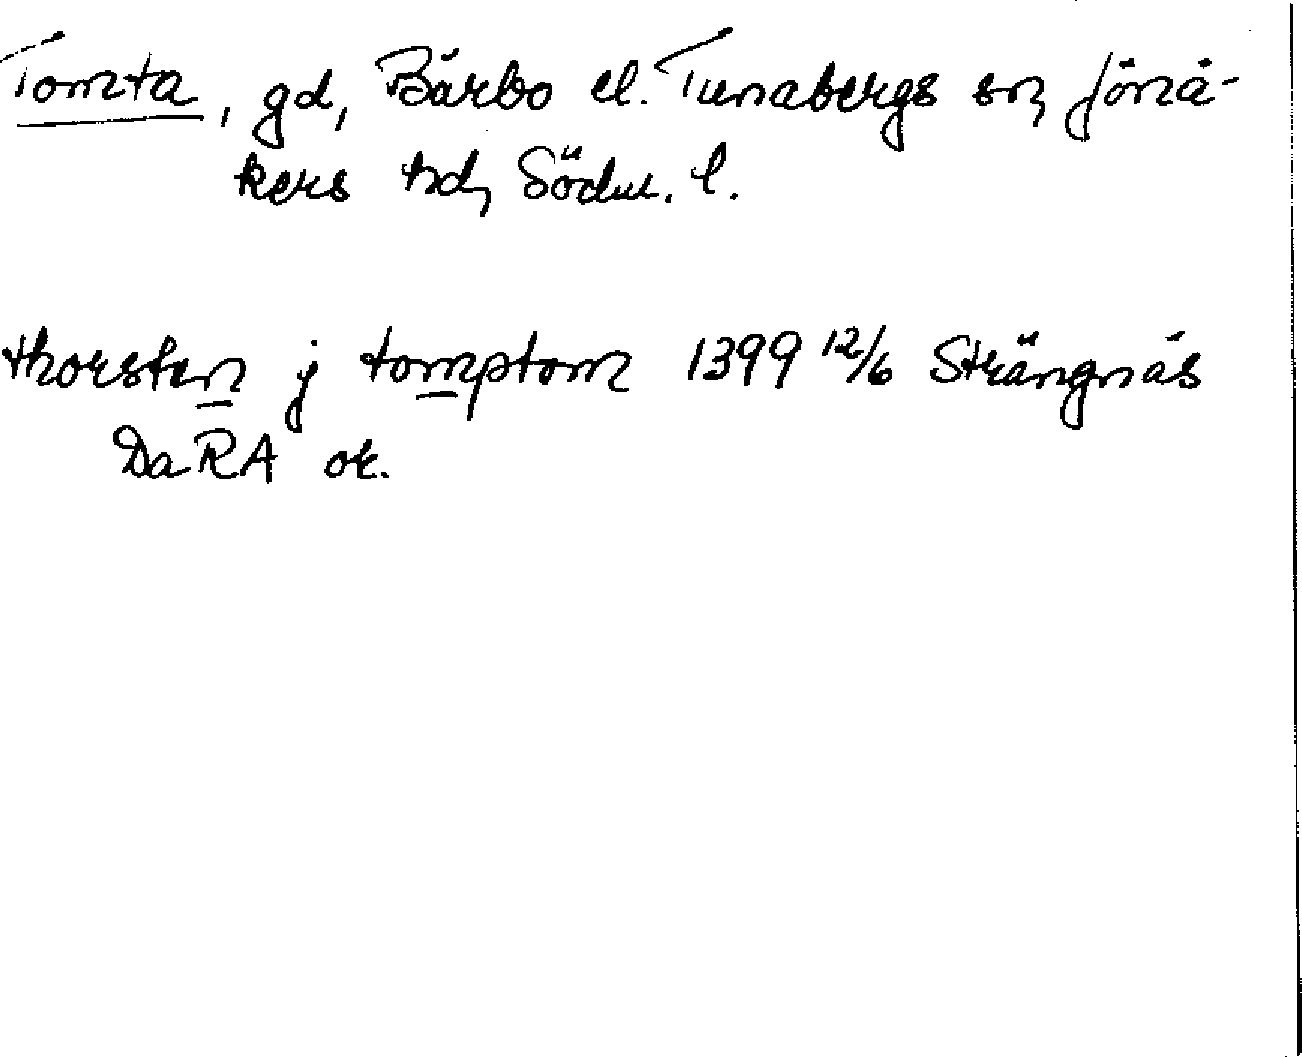 Tomta, gd, Bärbo el. Tunabergs sn, Jönå-
kers hd, Söderm. l.
thorsten j tomptom 1399 12/6 Strängnäs
Da RA or.